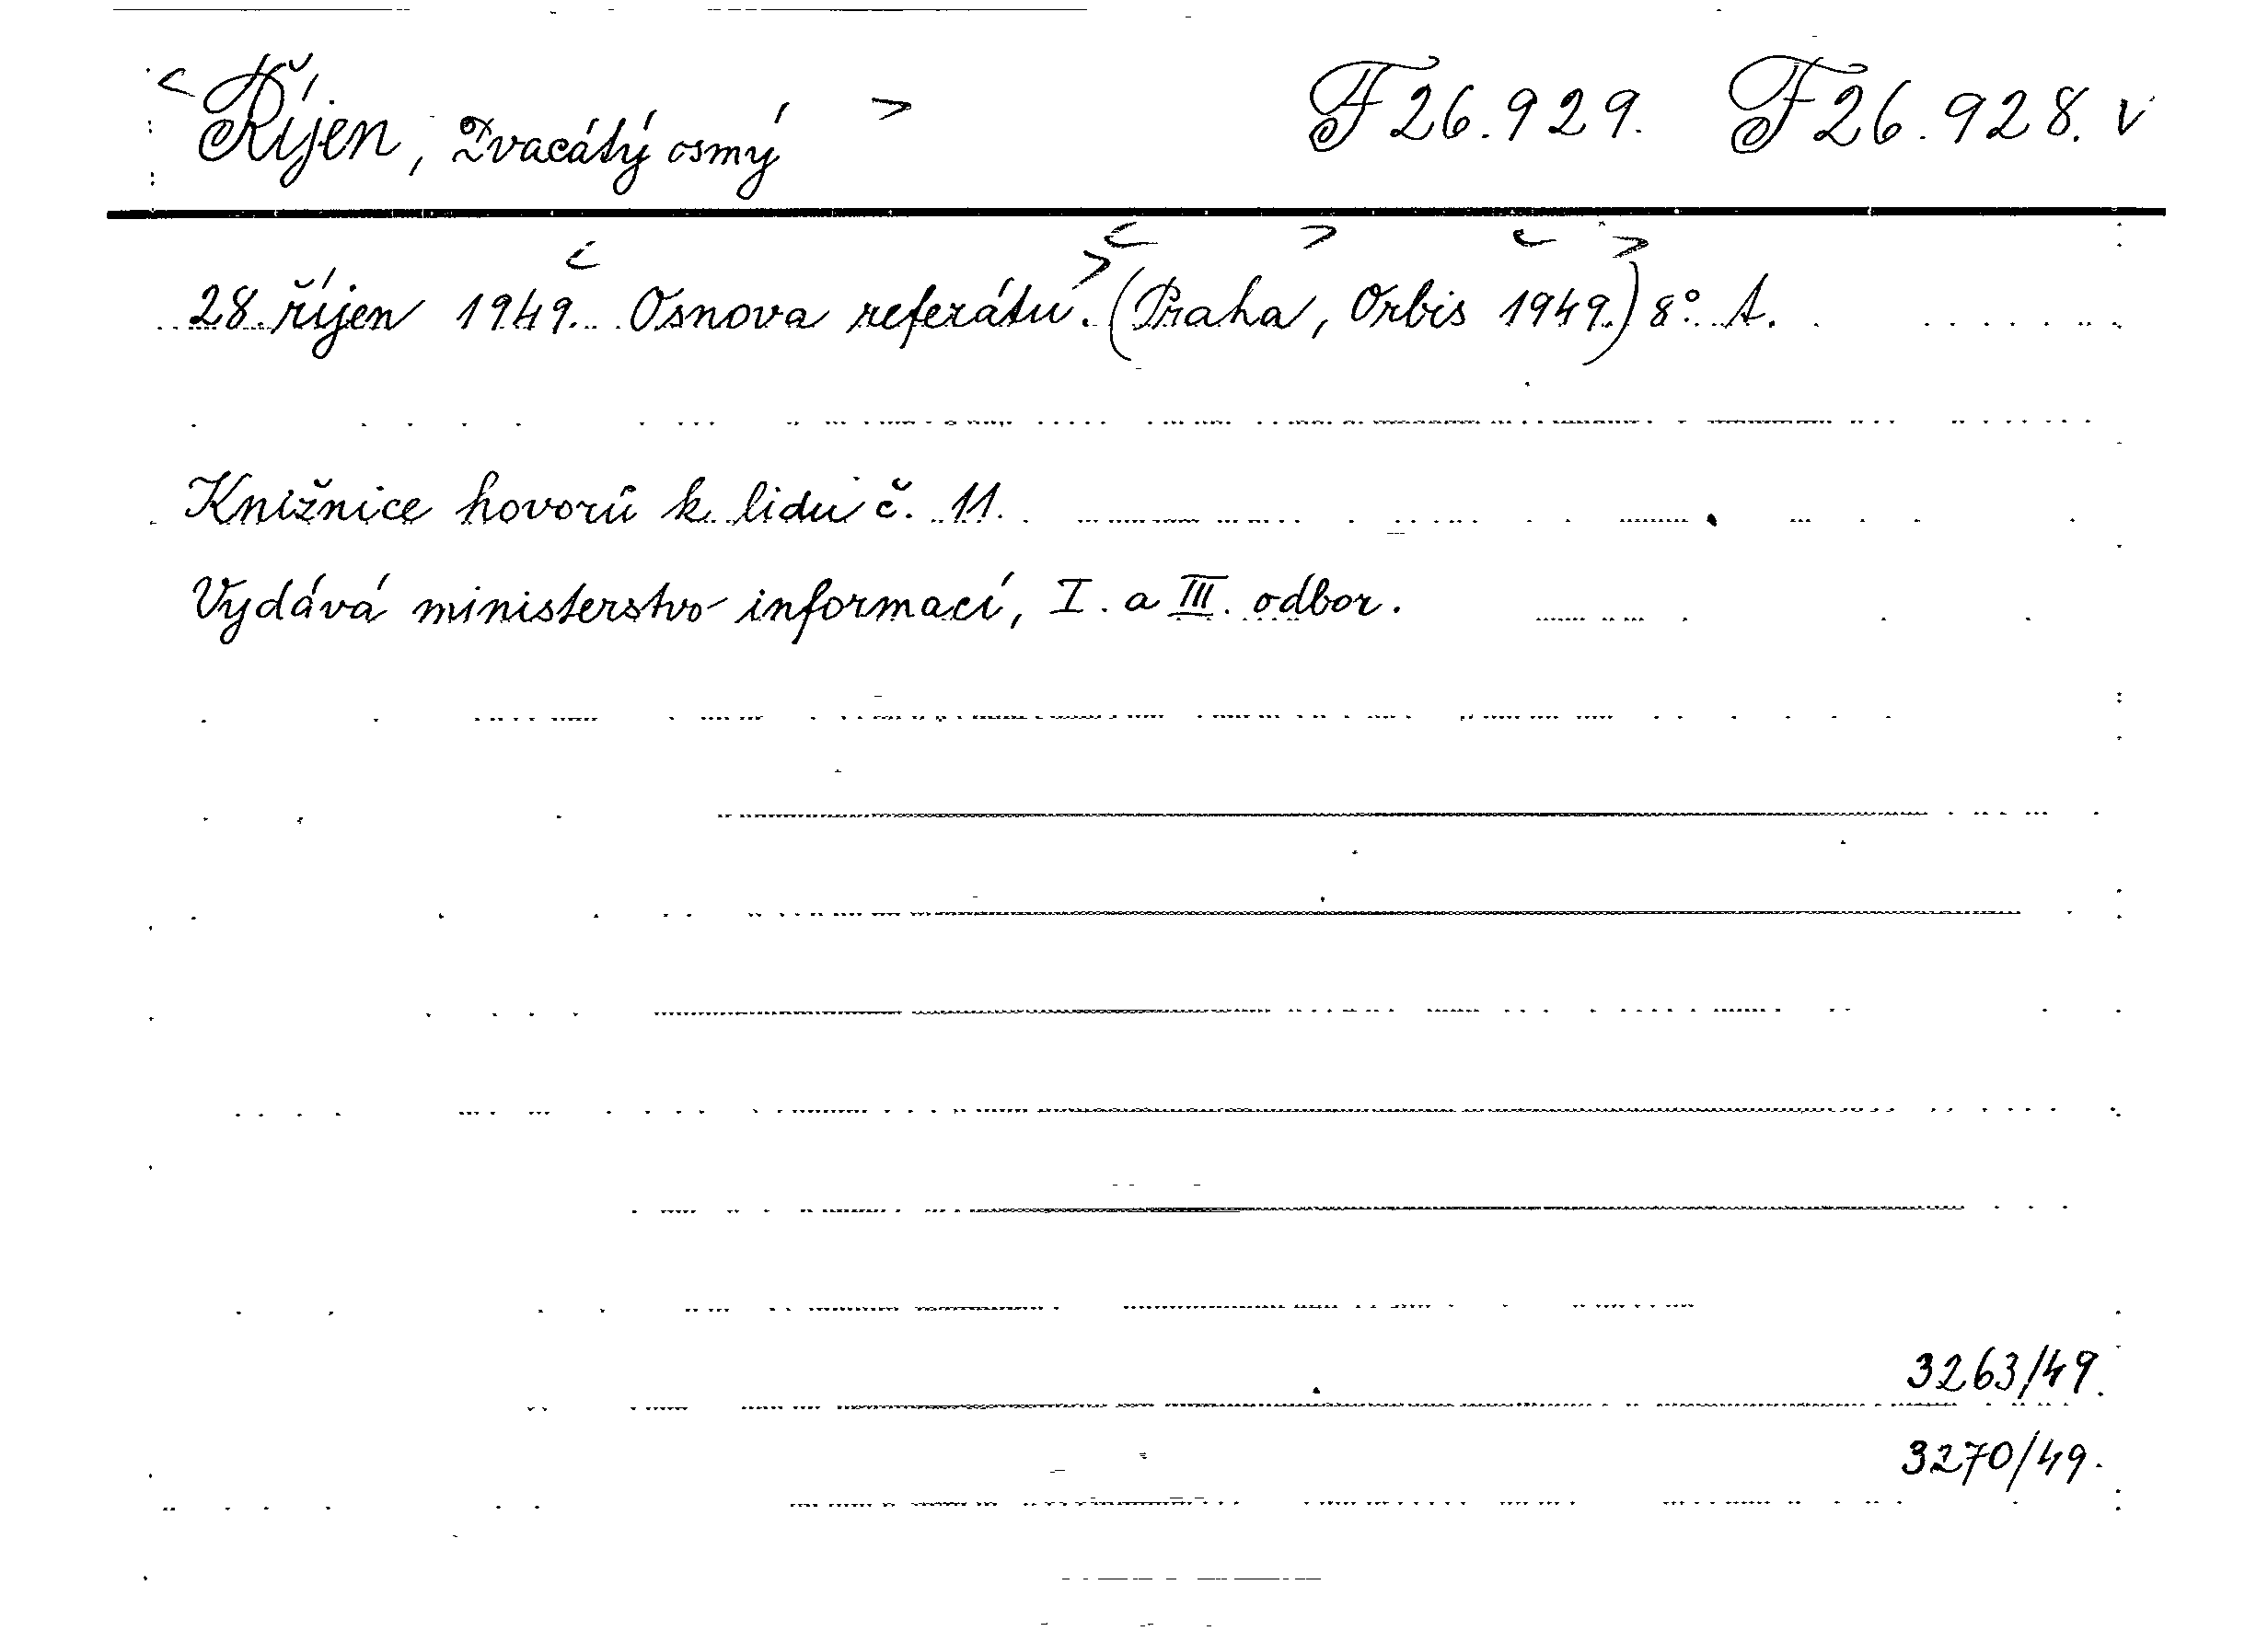 < Říjen, Dvacátý osmý > F 26.929. F 26.928. v
28. říjen 1949. Osnova referátu. (Praha, Orbis 1949.) 8° A.
Knižnice hovorů k lidu č. 11.
Vydává ministerstvo informací, I. a III. odbor.
3263/49.
3270/49.